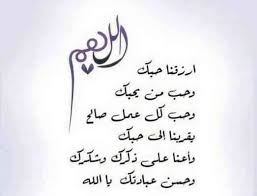 اللهم
ارزقنا حبك
وحب من يحبك
وحب كل عمل صالح
يقربنا الى حبك
وأعنا على ذكرك وشكرك
وحسن عبادتك يا الله